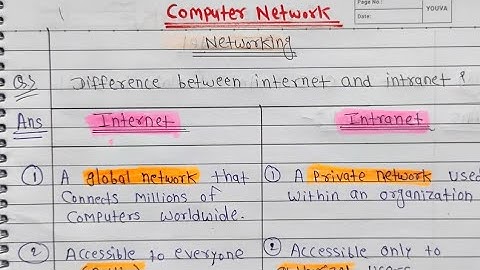 Computer Network
Page No.:
Date:
YOUVA
Networking
Q.> Difference between internet and intranet ?
Ans
Internet
Intranet
① A global network that
connects Millions of
Computers worldwide.
① A private network used
within an organization
② Accessible to everyone
② Accessible only to